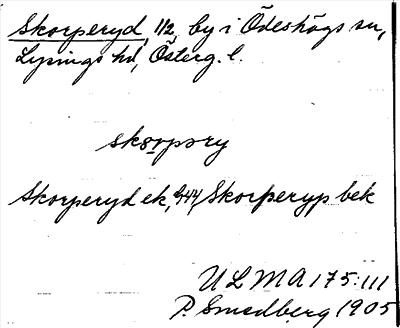 Skorperyd, 1/2, by i Ödeshögs sn,
Lysings hd, Österg. l.
skorpory
Skorperyd ek, 544, Skorperyp bek
ULMA 175:111
P. Smedberg 1905